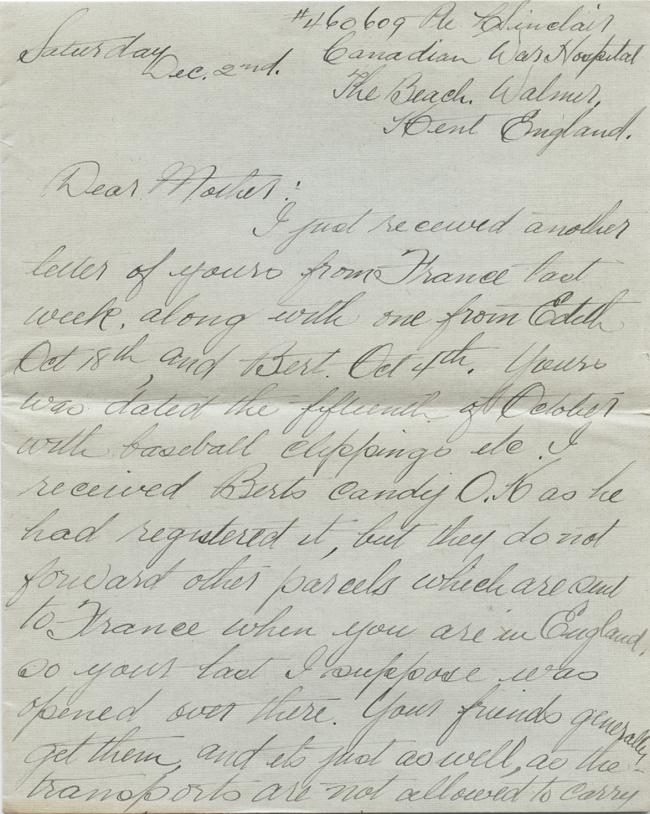 #460609 Pte C Sinclair
Saturday Canadian War Hospital
Dec. 2nd. The Beach. Walmer,
Kent England.
Dear Mother:
I just received another
letter of yours from France last
week, along with one from Edith
Oct 18th, and Bert. Oct 4th. Yours
was dated the fifteenth of October
with baseball clippings etc. I
received Berts candy O.K as he
had registered it, but they do not
forward other parcels which are sent
to France when you are in England,
so your last I suppose was
opened over there. Your friends generally
get them, and its just as well, as the
transports are not allowed to carry